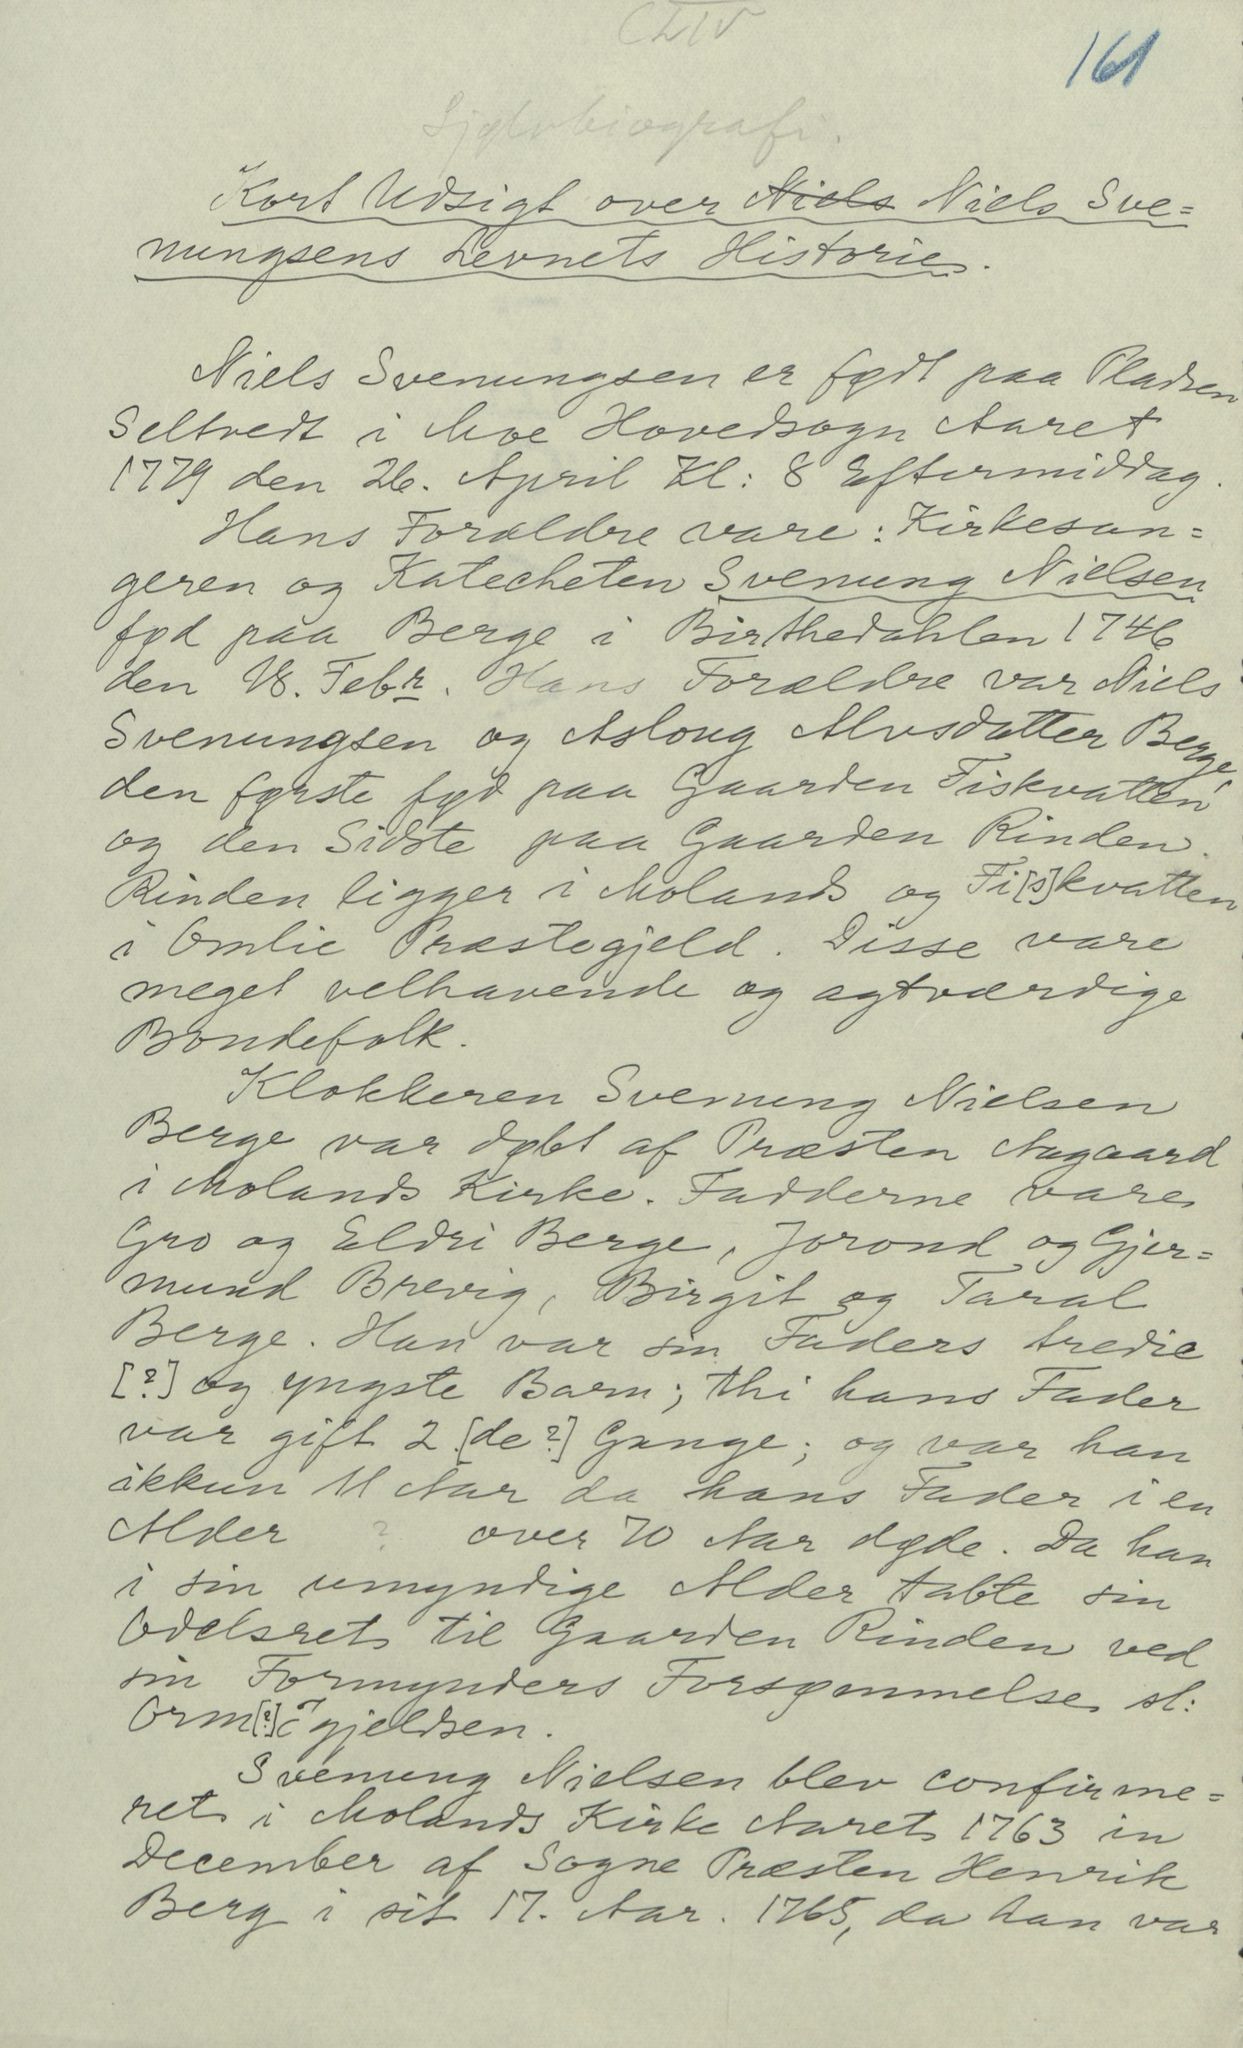 CLIV
161
Sjølvbiografi.
Kort Udsigt over Niels Niels Sve=
nungsens Levnets Historie.
Niels Svenungsen er født paa Pladsen
Seltvedt i Moe Hovedsogn Aaret
1779 den 26. April Kl: 8 Eftermiddag.
Hans Forældre vare: Kirkesan=
geren og Katecheten Svenung Nielsen
fød paa Berge i Birthedahlen 1746
den 18. Febr. Hans Forældre var Niels
Svenungsen og Asloug Alvsdatter Berge,
den første fød paa Gaarden Fiskvatten
og den Sidste paa Gaarden Rinden.
Rinden ligger i Molands og Fi[s]kvatten
i Omlie Præstegjeld. Disse vare
meget velhavende og agtværdige
Bondefolk.
Klokkeren Svenung Nielsen
Berge var døbt af Præsten Aagaard
i Molands Kirke. Fadderne vare
Gro og Eldri Berge, Jorond og Gjer=
mund Brevig, Birgit og Taral
Berge. Han var sin Faders tredie
[?] og yngste Barn; thi hans Fader
var gift 2 [de?] Gange; og var han
ikkun 11 Aar da hans Fader i en
Alder ? over 70 Aar døde. Da han
i sin umyndige Alder tabte sin
Odelsret til Gaarden Rinden ved
sin Formynders Forsømmelse sl:
Orm[?] gjeldsen.
Svenung Nielsen blev confirme=
ret i Molands Kirke Aaret 1763 in
December af Sogne Præsten Henrik
Berg i sit 17. Aar. 1765, da han var